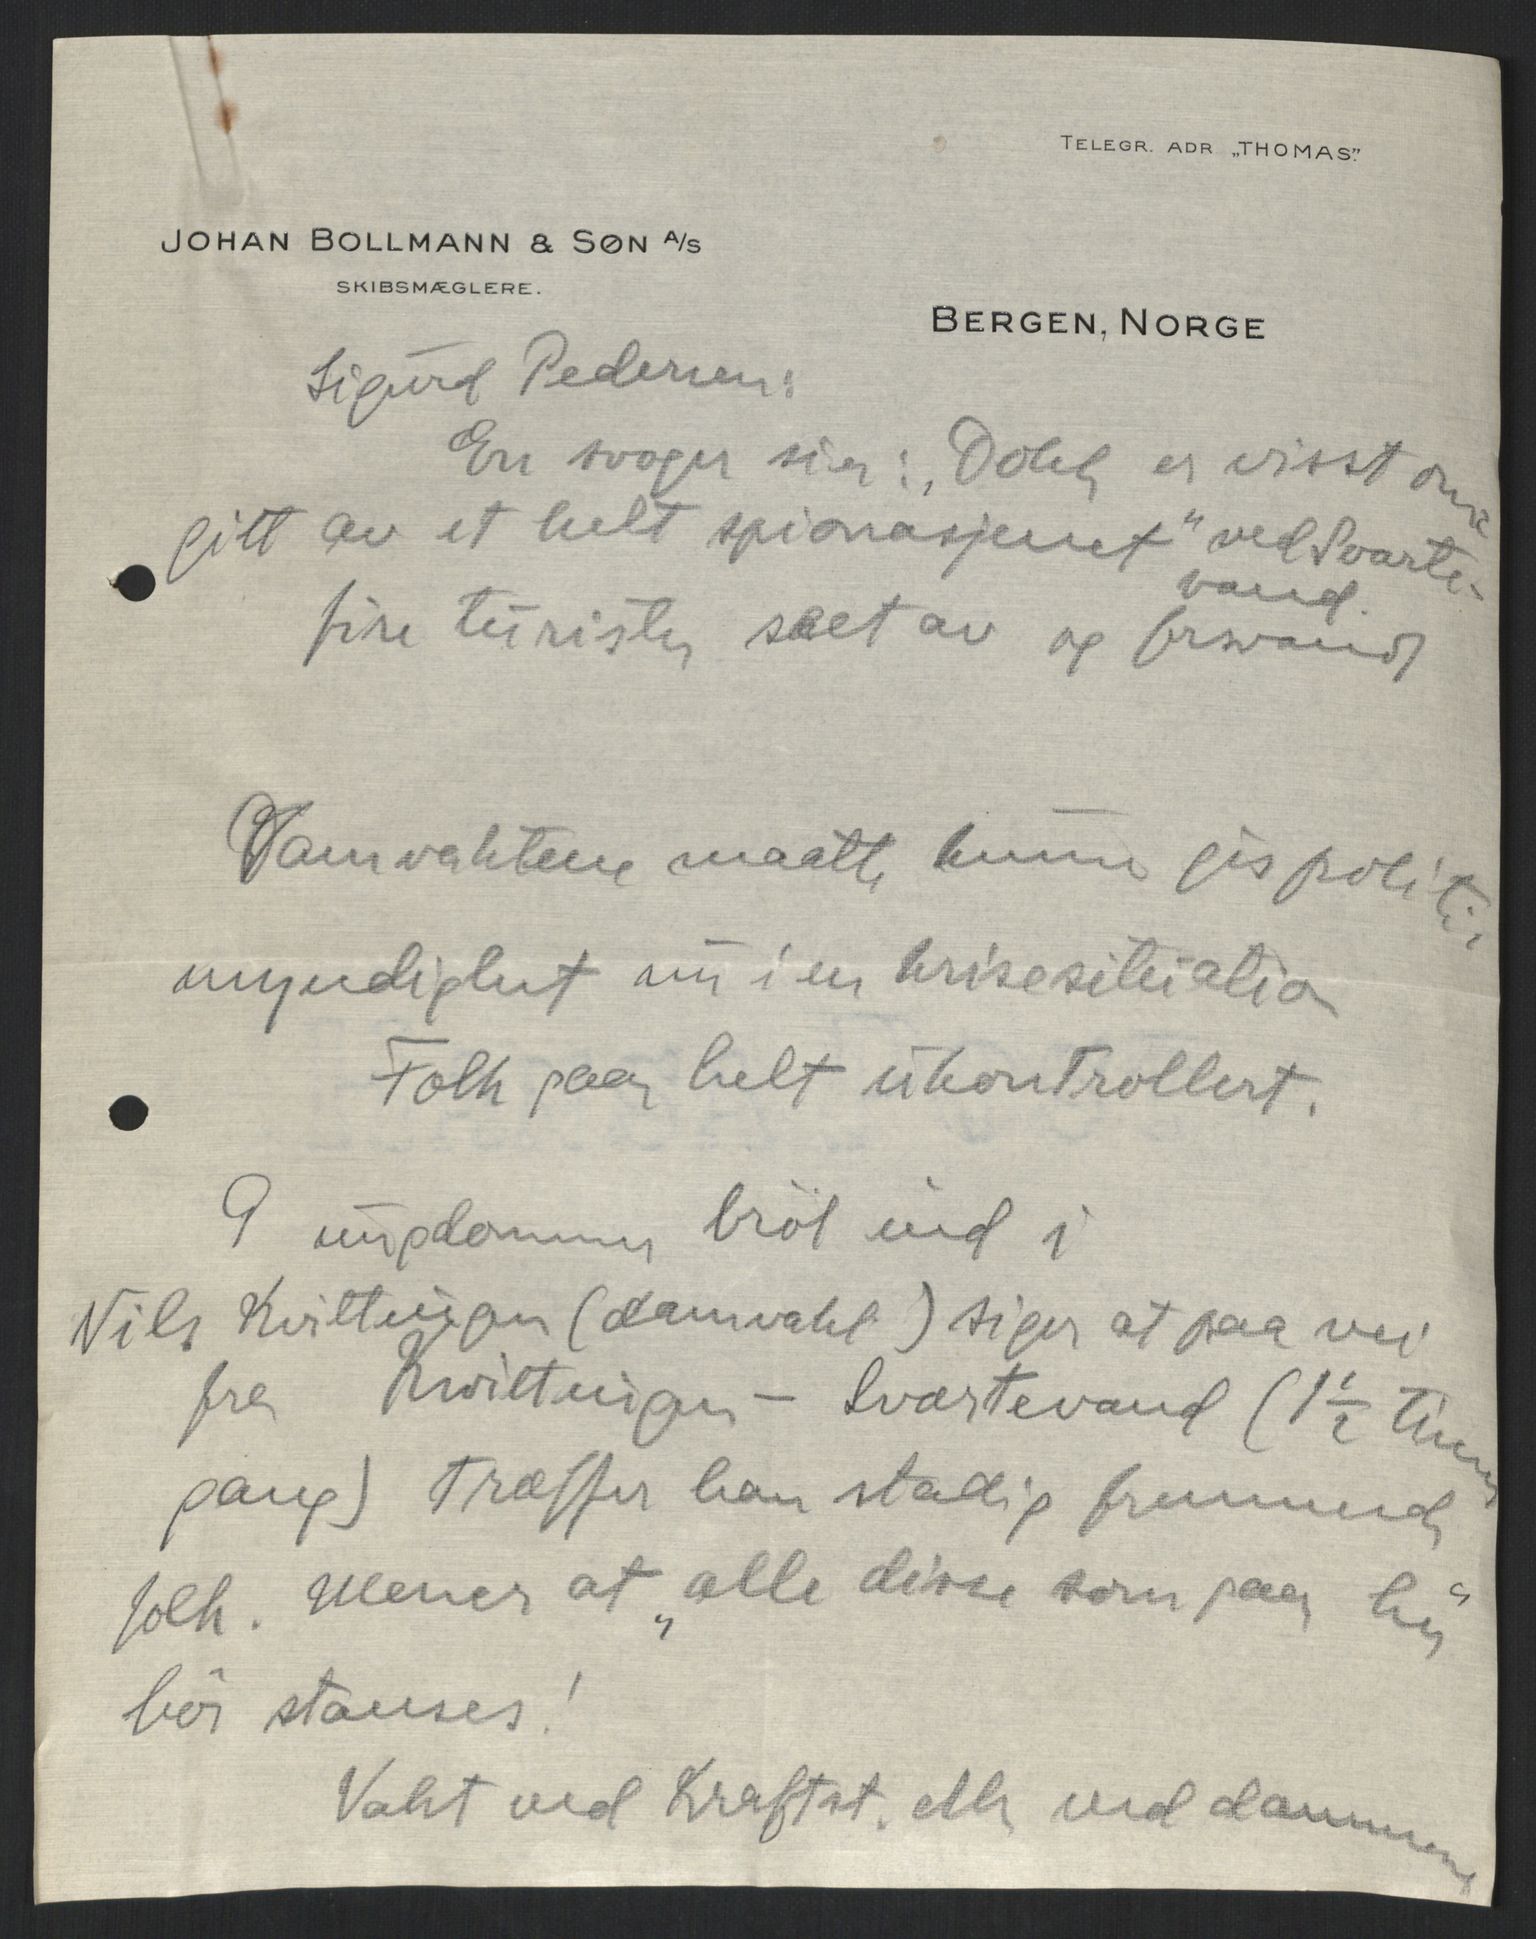 TELEGR. ADR „THOMAS”.
JOHAN BOLLMANN & SØN A/S
SKIBSMÆGLERE.
BERGEN, NORGE
Sigurd Pedersen:
En svoger sier: „Dokk er visst om-
gitt av et helt spionasjenet" ved Svarte-
vand.
fire turister sæt av og forsvandt
Damvaktene maatte kunne gis politi-
myndighet nu i en krisesituation
Folk gaar helt ukontrollert.
9 ungdommer bröt ind i
Nils Kvittingen (damvakt) siger at paa vei
fra Kvittingen – Svartevand (1½ times
gang) træffer han stadig fremmede
folk. Mener at „alle disse som gaar her"
bör stanses!
Vakt ved Kraftst. eller ved dammene